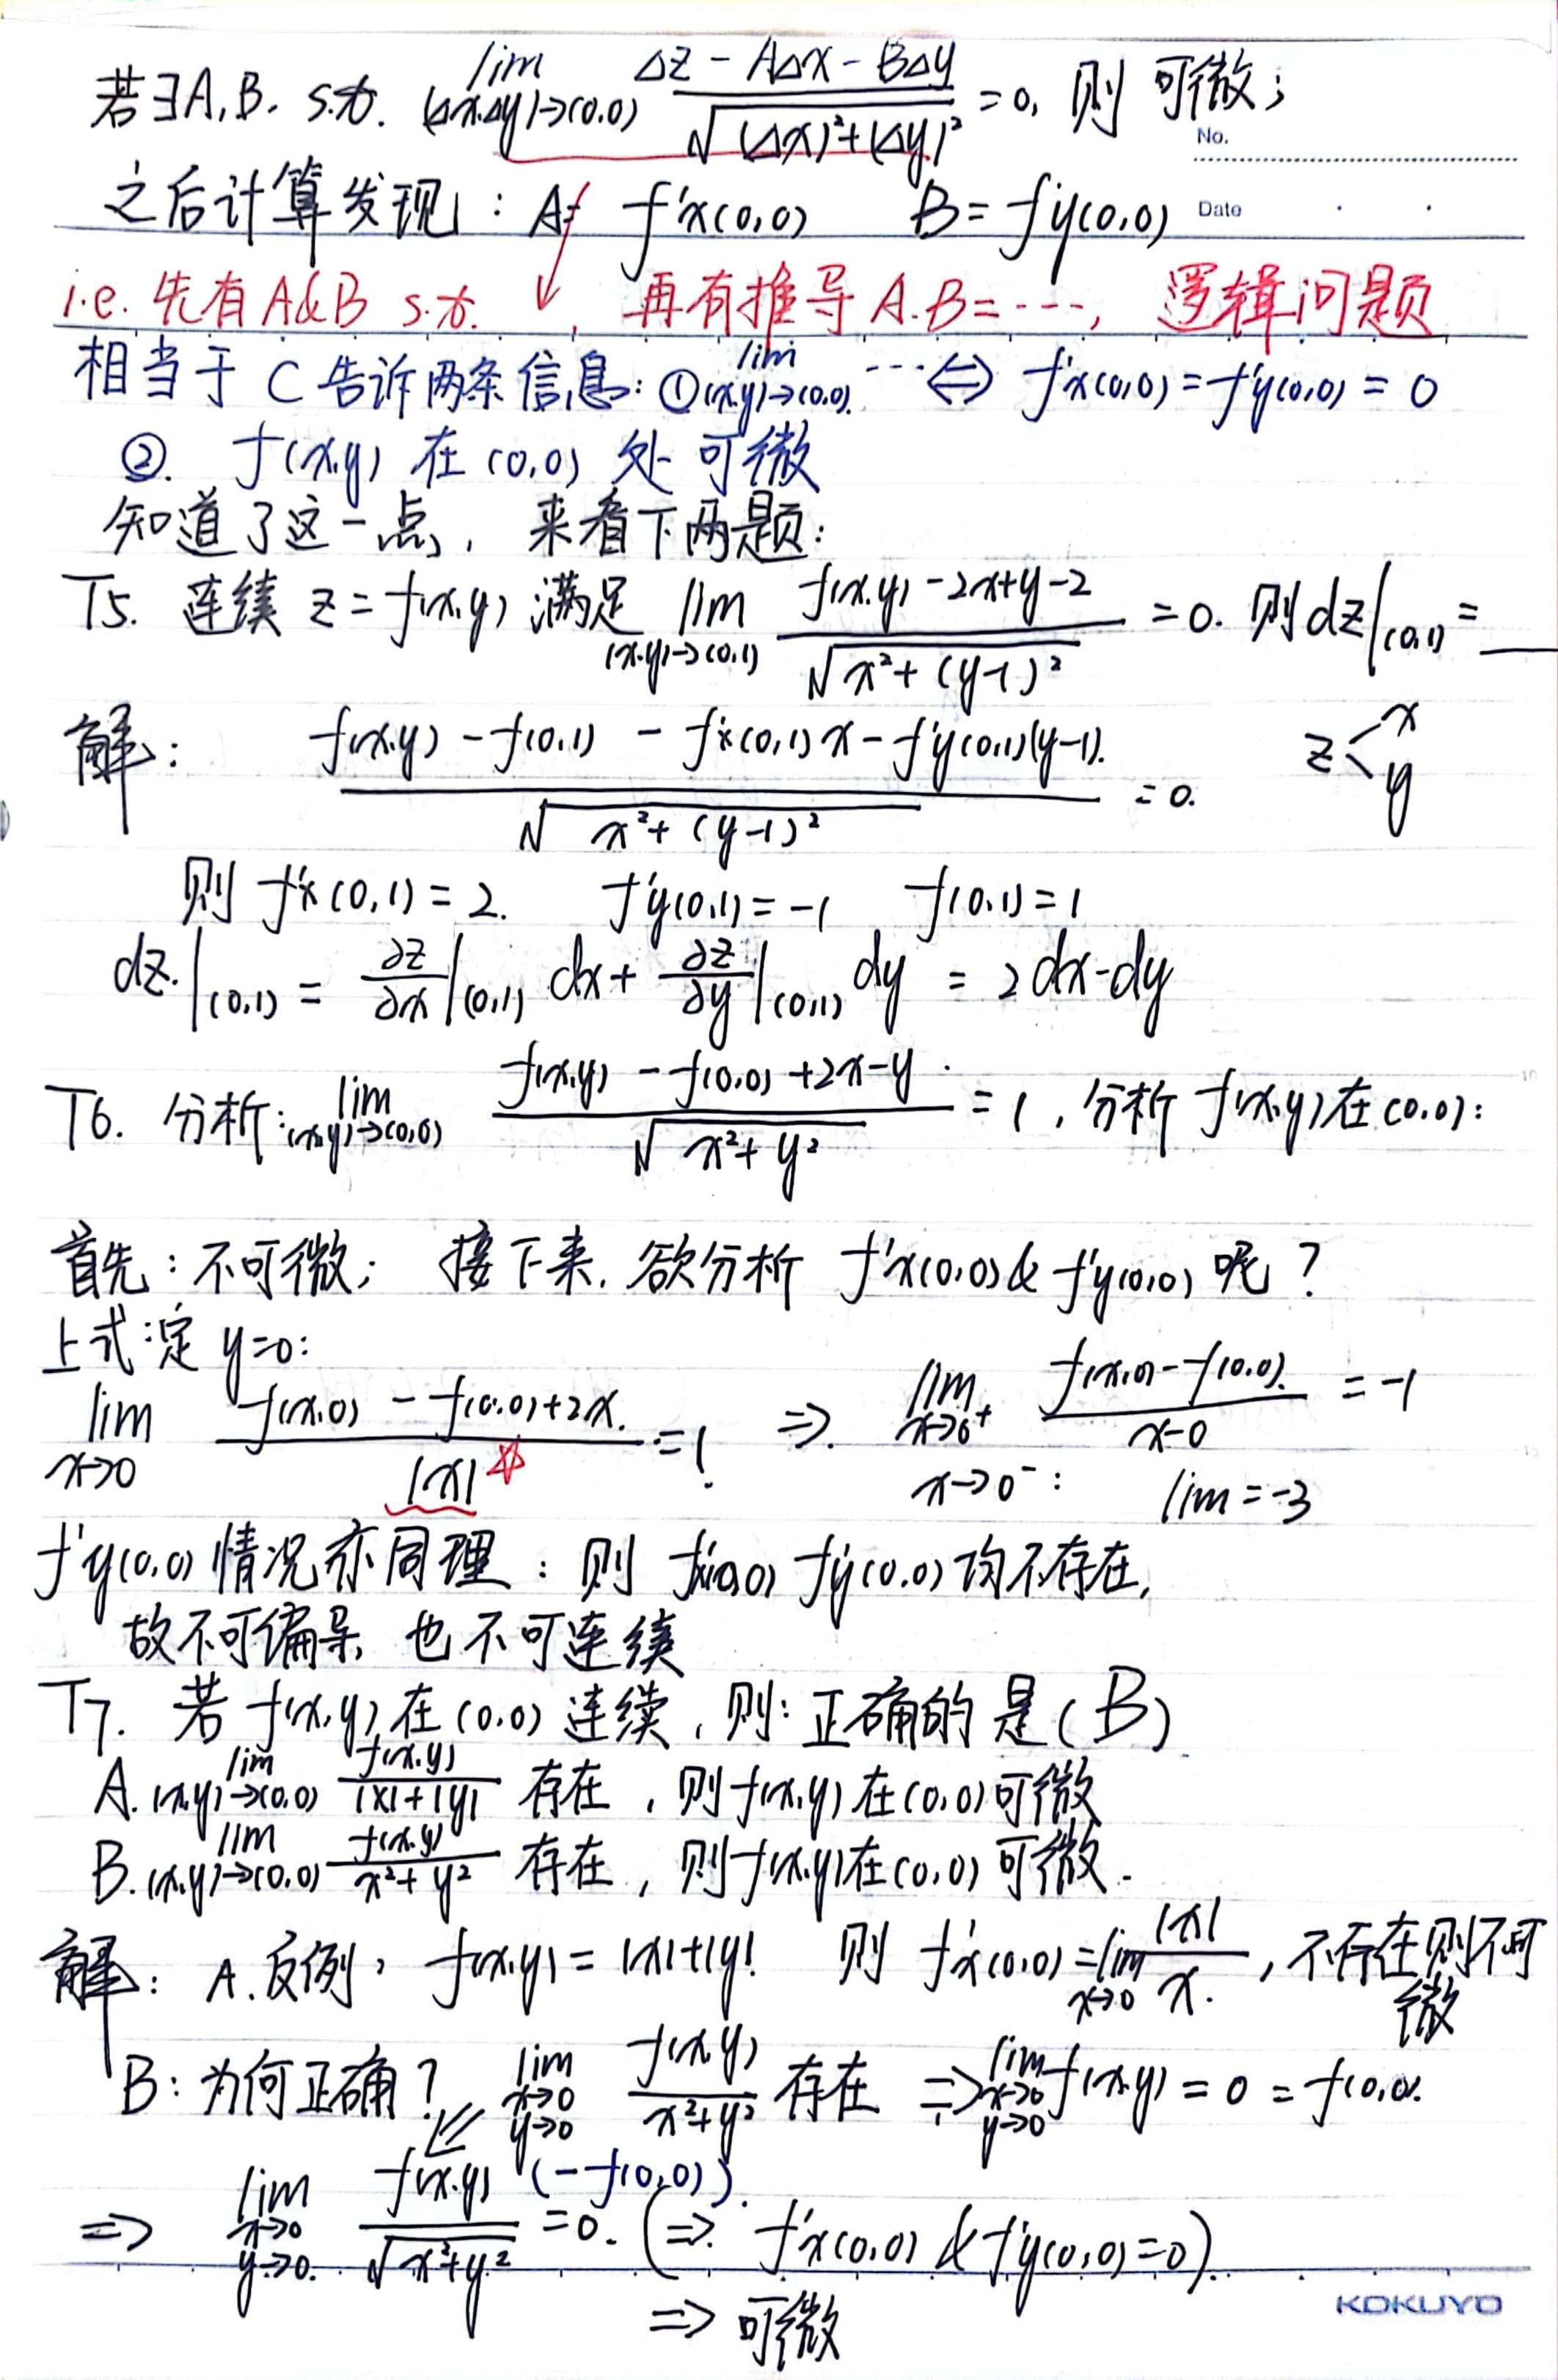 若∃A,B. s.t. lim_{(Δx,Δy)→(0,0)} (Δz - AΔx - BΔy)/√((Δx)²+(Δy)²) = 0, 则 可微;
No.
之后计算发现: A= f'x(0,0) B= f'y(0,0)
Date
i.e. 先有A&B s.t. ↓, 再有推导 A.B=----, 逻辑问题
相当于 C 告诉两条信息: ① lim_{(x,y)→(0,0)} ... ⇔ f'x(0,0) = f'y(0,0) = 0
②. f(x,y) 在 (0,0) 处 可微
知道了这一点, 来看下两题:
T5. 连续 z = f(x,y) 满足 lim_{(x,y)→(0,1)} (f(x,y) -2x+y-2)/√(x²+(y-1)²) = 0. 则 dz|(0,1) = __
解: (f(x,y) - f(0,1) - f'x(0,1)x - f'y(0,1)(y-1).)/√(x²+(y-1)²) = 0. z< x y
则 f'x(0,1) = 2. f'y(0,1) = -1 f(0,1) = 1
dz.|(0,1) = ∂z/∂x|(0,1) dx + ∂z/∂y|(0,1) dy = 2dx-dy
T6. 分析: lim_{(x,y)→(0,0)} (f(x,y) - f(0,0) +2x-y)/√(x²+y²) = 1, 分析 f(x,y) 在 (0,0):
首先: 不可微; 接下来, 欲分析 f'x(0,0) & f'y(0,0) 呢?
上式: 定 y=0:
lim_{x→0} (f(x,0) - f(0,0)+2x.)/|x| = 1. ⇒. lim_{x→0⁺} (f(x,0) - f(0,0).)/(x-0) = -1
x→0⁻: lim = -3
f'y(0,0) 情况亦同理: 则 f'x(0,0) f'y(0,0) 均不存在,
故不可偏导, 也不可连续
T7. 若 f(x,y) 在 (0,0) 连续, 则: 正确的是 (B)
A. lim_{(x,y)→(0,0)} f(x,y)/(|x|+|y|) 存在, 则 f(x,y) 在 (0,0) 可微
B. lim_{(x,y)→(0,0)} f(x,y)/(x²+y²) 存在, 则 f(x,y) 在 (0,0) 可微.
解: A. 反例, f(x,y) = |x|+|y| 则 f'x(0,0) = lim_{x→0} |x|/x., 不存在则不可
微
B: 为何正确? lim_{x→0 y→0} f(x,y)/(x²+y²) 存在 ⇒ lim_{x→0 y→0} f(x,y) = 0 = f(0,0).
⇒ lim_{x→0 y→0.} f(x,y) (-f(0,0))/√(x²+y²) = 0. (⇒. f'x(0,0) & f'y(0,0)=0).
⇒ 可微
KOKUYO